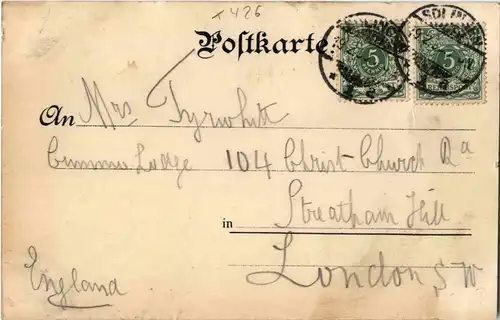 + 426
Postkarte
An Mrs Tyrwhitt
Lodge 104 Christ Church Rd
in Streatham Hill
London S W
England
5
5